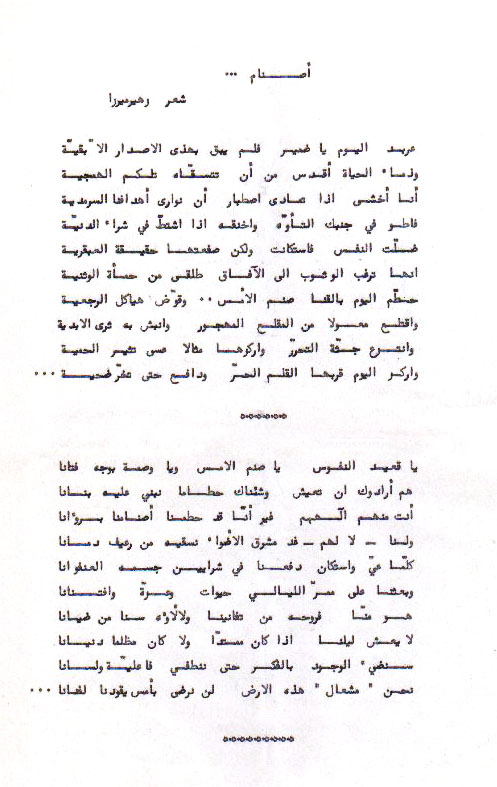 أصنام ...
شعر زهير ميرزا
عربد اليوم يا ضمير فلم يبق بهذى الاصدار الا بقية
وذماء الحياة أقدس من أن تتسقاه تلكم الهمجية
أنا أخشى اذا تمادى اصطبار أن نوارى أهدافنا السرمدية
فاطو في جنبك التأوه واخنقه اذا اشتط في شراء الدنية
ضلت النفس فاستكانت ولكن صفعتها حقيقة العبقرية
انها ترقب الوثوب الى الآفاق طلقى من حمأة الوثنية
حطم اليوم بالقنا صنم الأمس .. وقوض هياكل الرجعية
واقتطع معولا من المقلع المهجور وانبش به ثرى الابدية
وانتزع جثة التحرر واركزها مثالا عسى تثير الحمية
واركز اليوم قربها القلم الحر ودافع حتى عفر ضحية ...
يا قعيد النفوس يا صنم الامس ويا وصمة بوجه فتانا
هم أرادوك ان تعيش وشئناك حطاما نبني عليه بنانا
أنت منهم آلههم غير أنا قد حطمنا أصنامنا برؤانا
ولنا ــ لا لهم ــ قد مشرق الأضواء نسقيه من رعيف دمانا
كلما عي واستكان دفعنا في شرايين جسمه العنفوانا
وبعثنا على ممر الليالي حيوات وعزة وافتنانا
هو منا فروحه من تفانينا ولألاؤه سنا من ضيانا
لا يعش ليلنا اذا كان ممتدا ولا كان مظلما دنيانا
سنضيء الوجود بالفكر حتى ننطفي فاعلية ولسانا
نحن " مشعال " هذه الارض لن نرضى بأمس يقودنا لفنانا ...